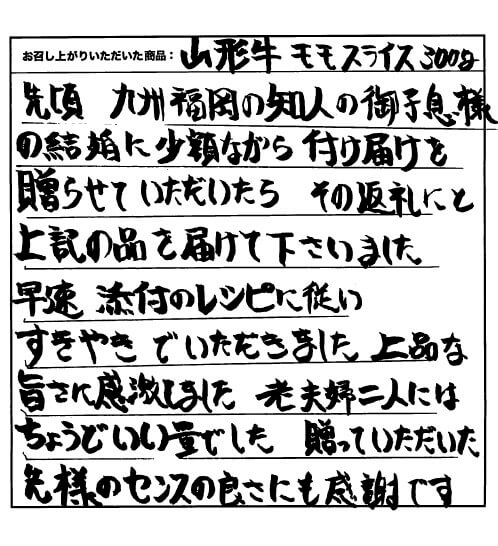 お召し上がりいただいた商品： 山形牛 モモスライス300g
先頃 九州福岡の知人の御子息様
の結婚に少額ながら付け届けを
贈らせていただいたら その返礼にと
上記の品を届けて下さいました
早速 添付のレシピに従い
すきやきでいただきました 上品な
旨さに感激しました 老夫婦二人には
ちょうどいい量でした 贈っていただいた
先様のセンスの良さにも感謝です